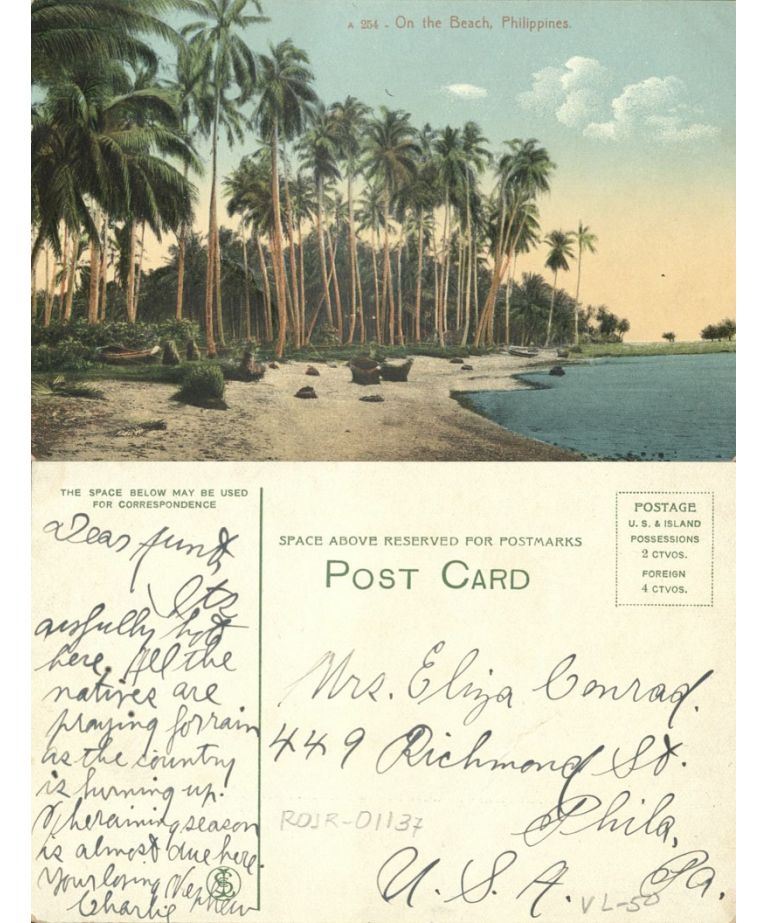 A 254 - On the Beach, Philippines.
THE SPACE BELOW MAY BE USED
FOR CORRESPONDENCE
Dear Aunt,
Its
awfully hot
here. All the
natives are
praying for rain
as the country
is burning up.
The raining season
is almost due here.
Your loving Nephew
Charlie
SPACE ABOVE RESERVED FOR POSTMARKS
POST CARD
POSTAGE
U. S. & ISLAND
POSSESSIONS
2 CTVOS.
FOREIGN
4 CTVOS.
Mrs. Eliza Conrad.
449 Richmond St.
Phila,
Pa.
U. S. A.
ROJR-01137
VL-50